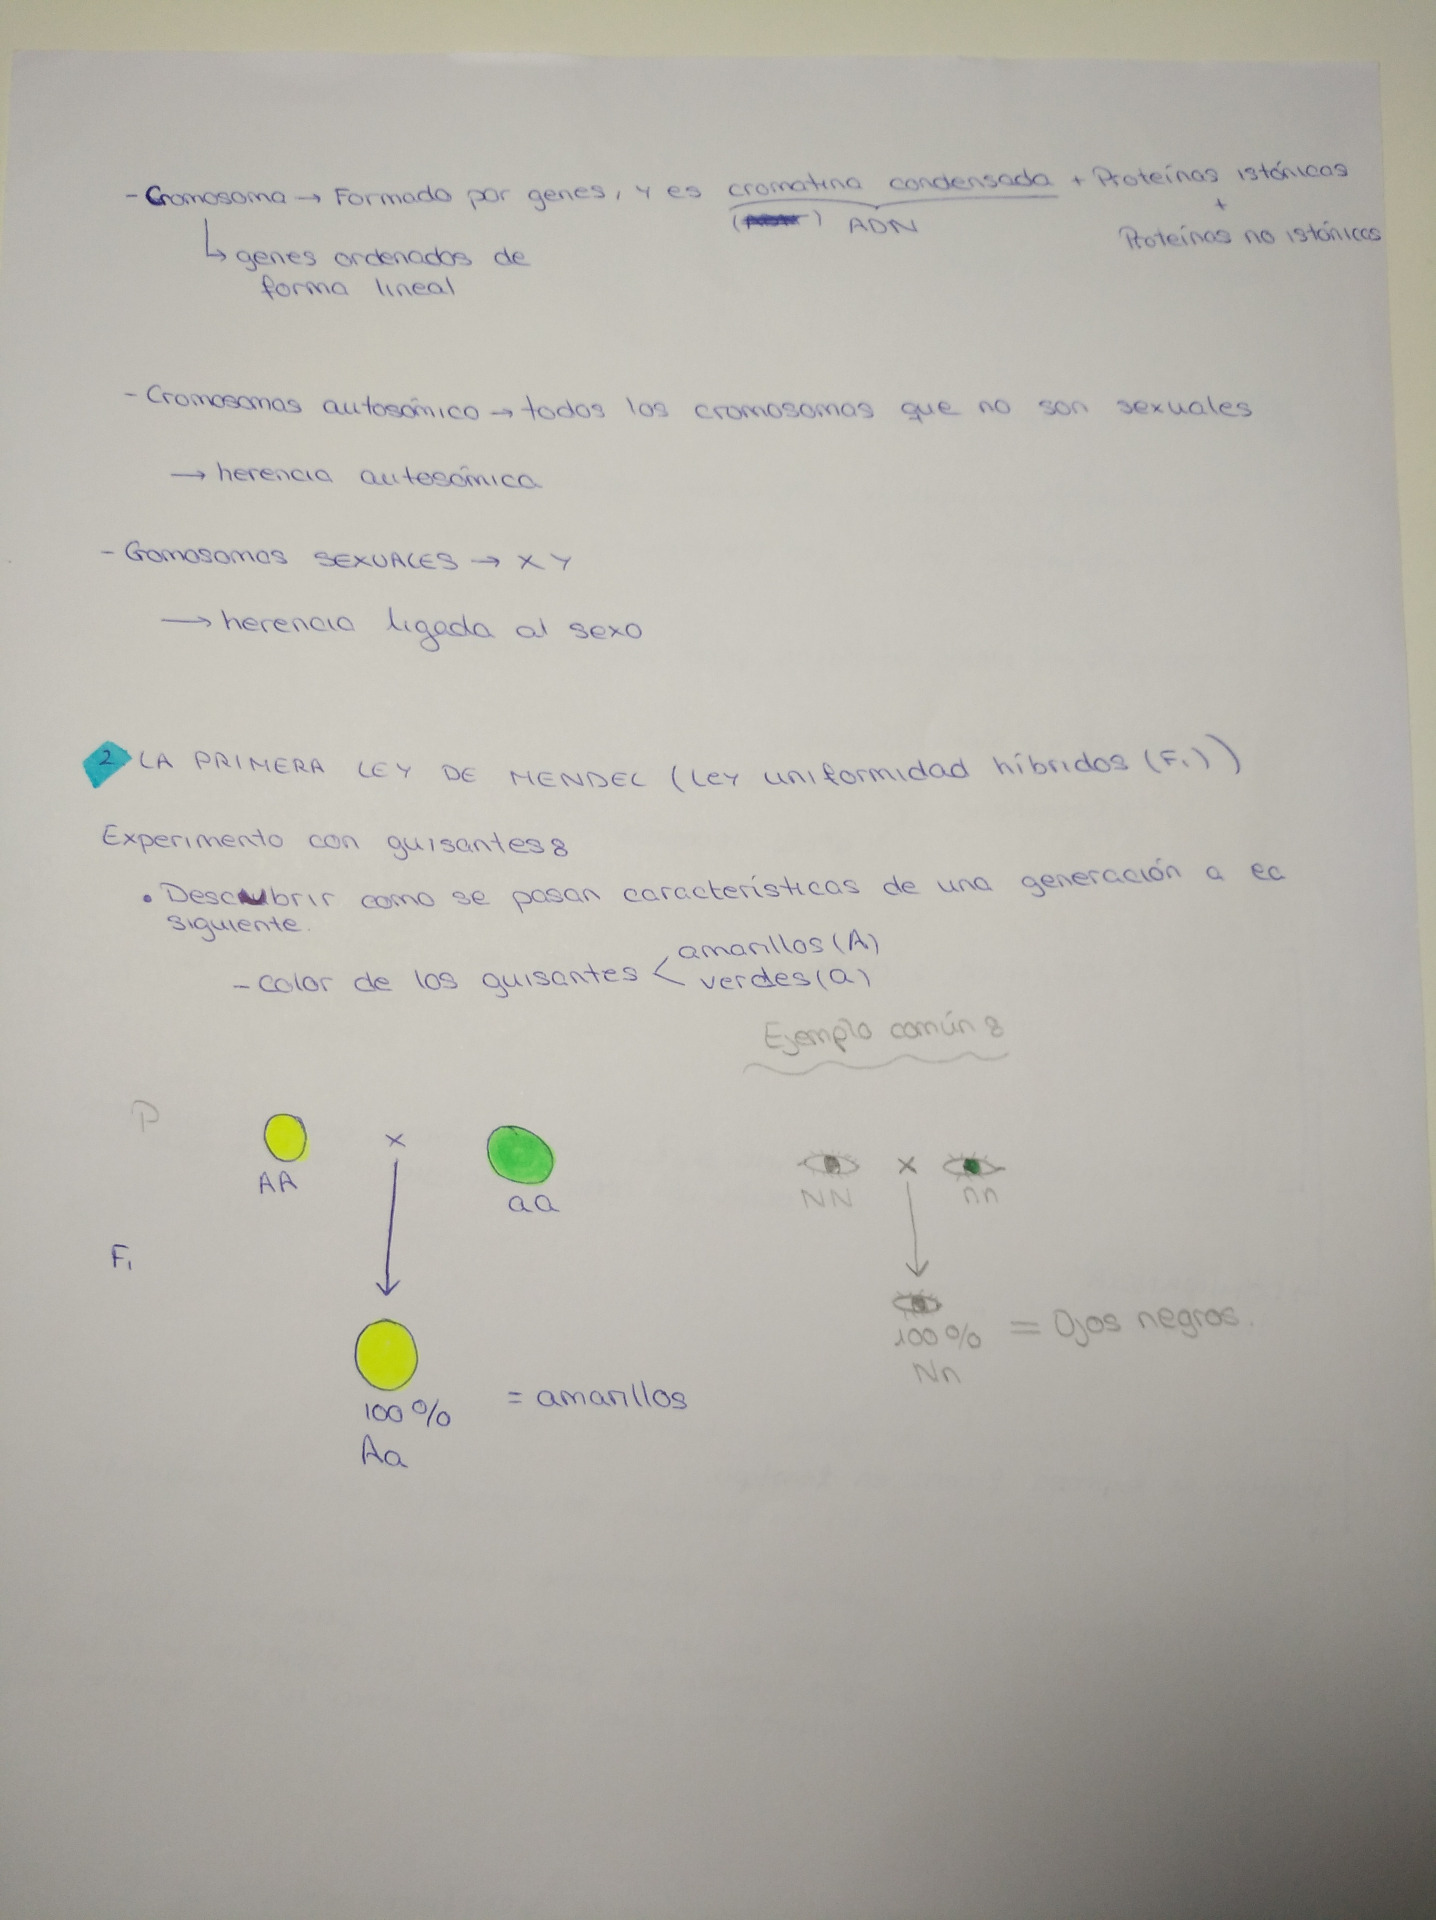 - Cromosoma → Formado por genes, y es cromatina condensada + Proteínas istónicas
( ) ADN
+
Proteínas no istónicas
↳ genes ordenados de
forma lineal
- Cromosomas autosómico → todos los cromosomas que no son sexuales
→ herencia autosómica
- Cromosomas SEXUALES → X Y
→ herencia ligada al sexo
2 LA PRIMERA LEY DE MENDEL (Ley uniformidad híbridos (F₁))
Experimento con guisantes:
• Descubrir como se pasan características de una generación a la
siguiente.
- color de los guisantes < amarillos (A)
verdes (a)
Ejemplo común:
P
x
AA
aa
x
NN
nn
F₁
100%
Aa
= amarillos
100%
Nn
= Ojos negros.